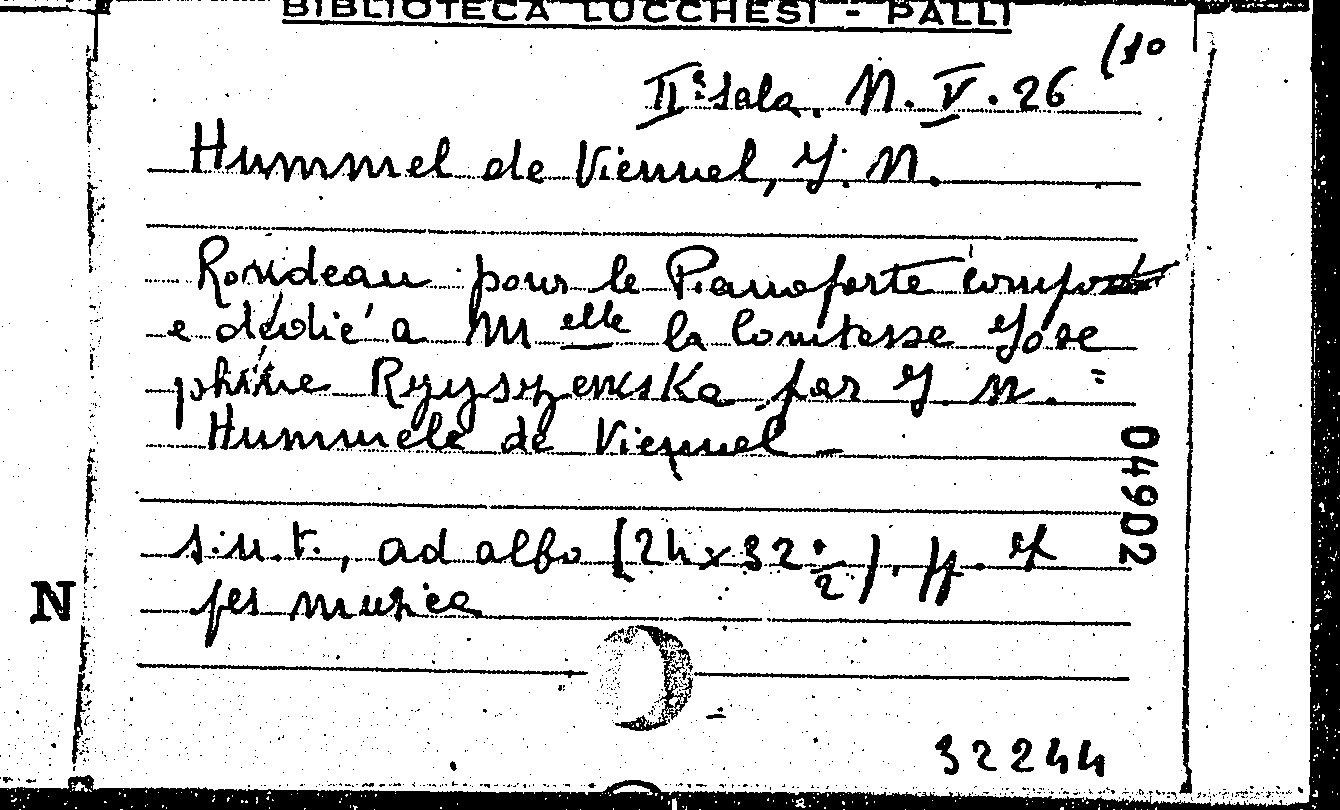 BIBLIOTECA LUCCHESI - PALLI
IIª Sala. N. V. 26 (10
Hummel de Viennel, J. N.
Rondeau pour le Pianoforte compos
e dédié a Melle la Comtesse Jose
phine Ryyszenska par J. N. =
Hummele de Viennel -
s.n.t., ad albo (24x32 1/2), pp.
per musica
04902
N
32244